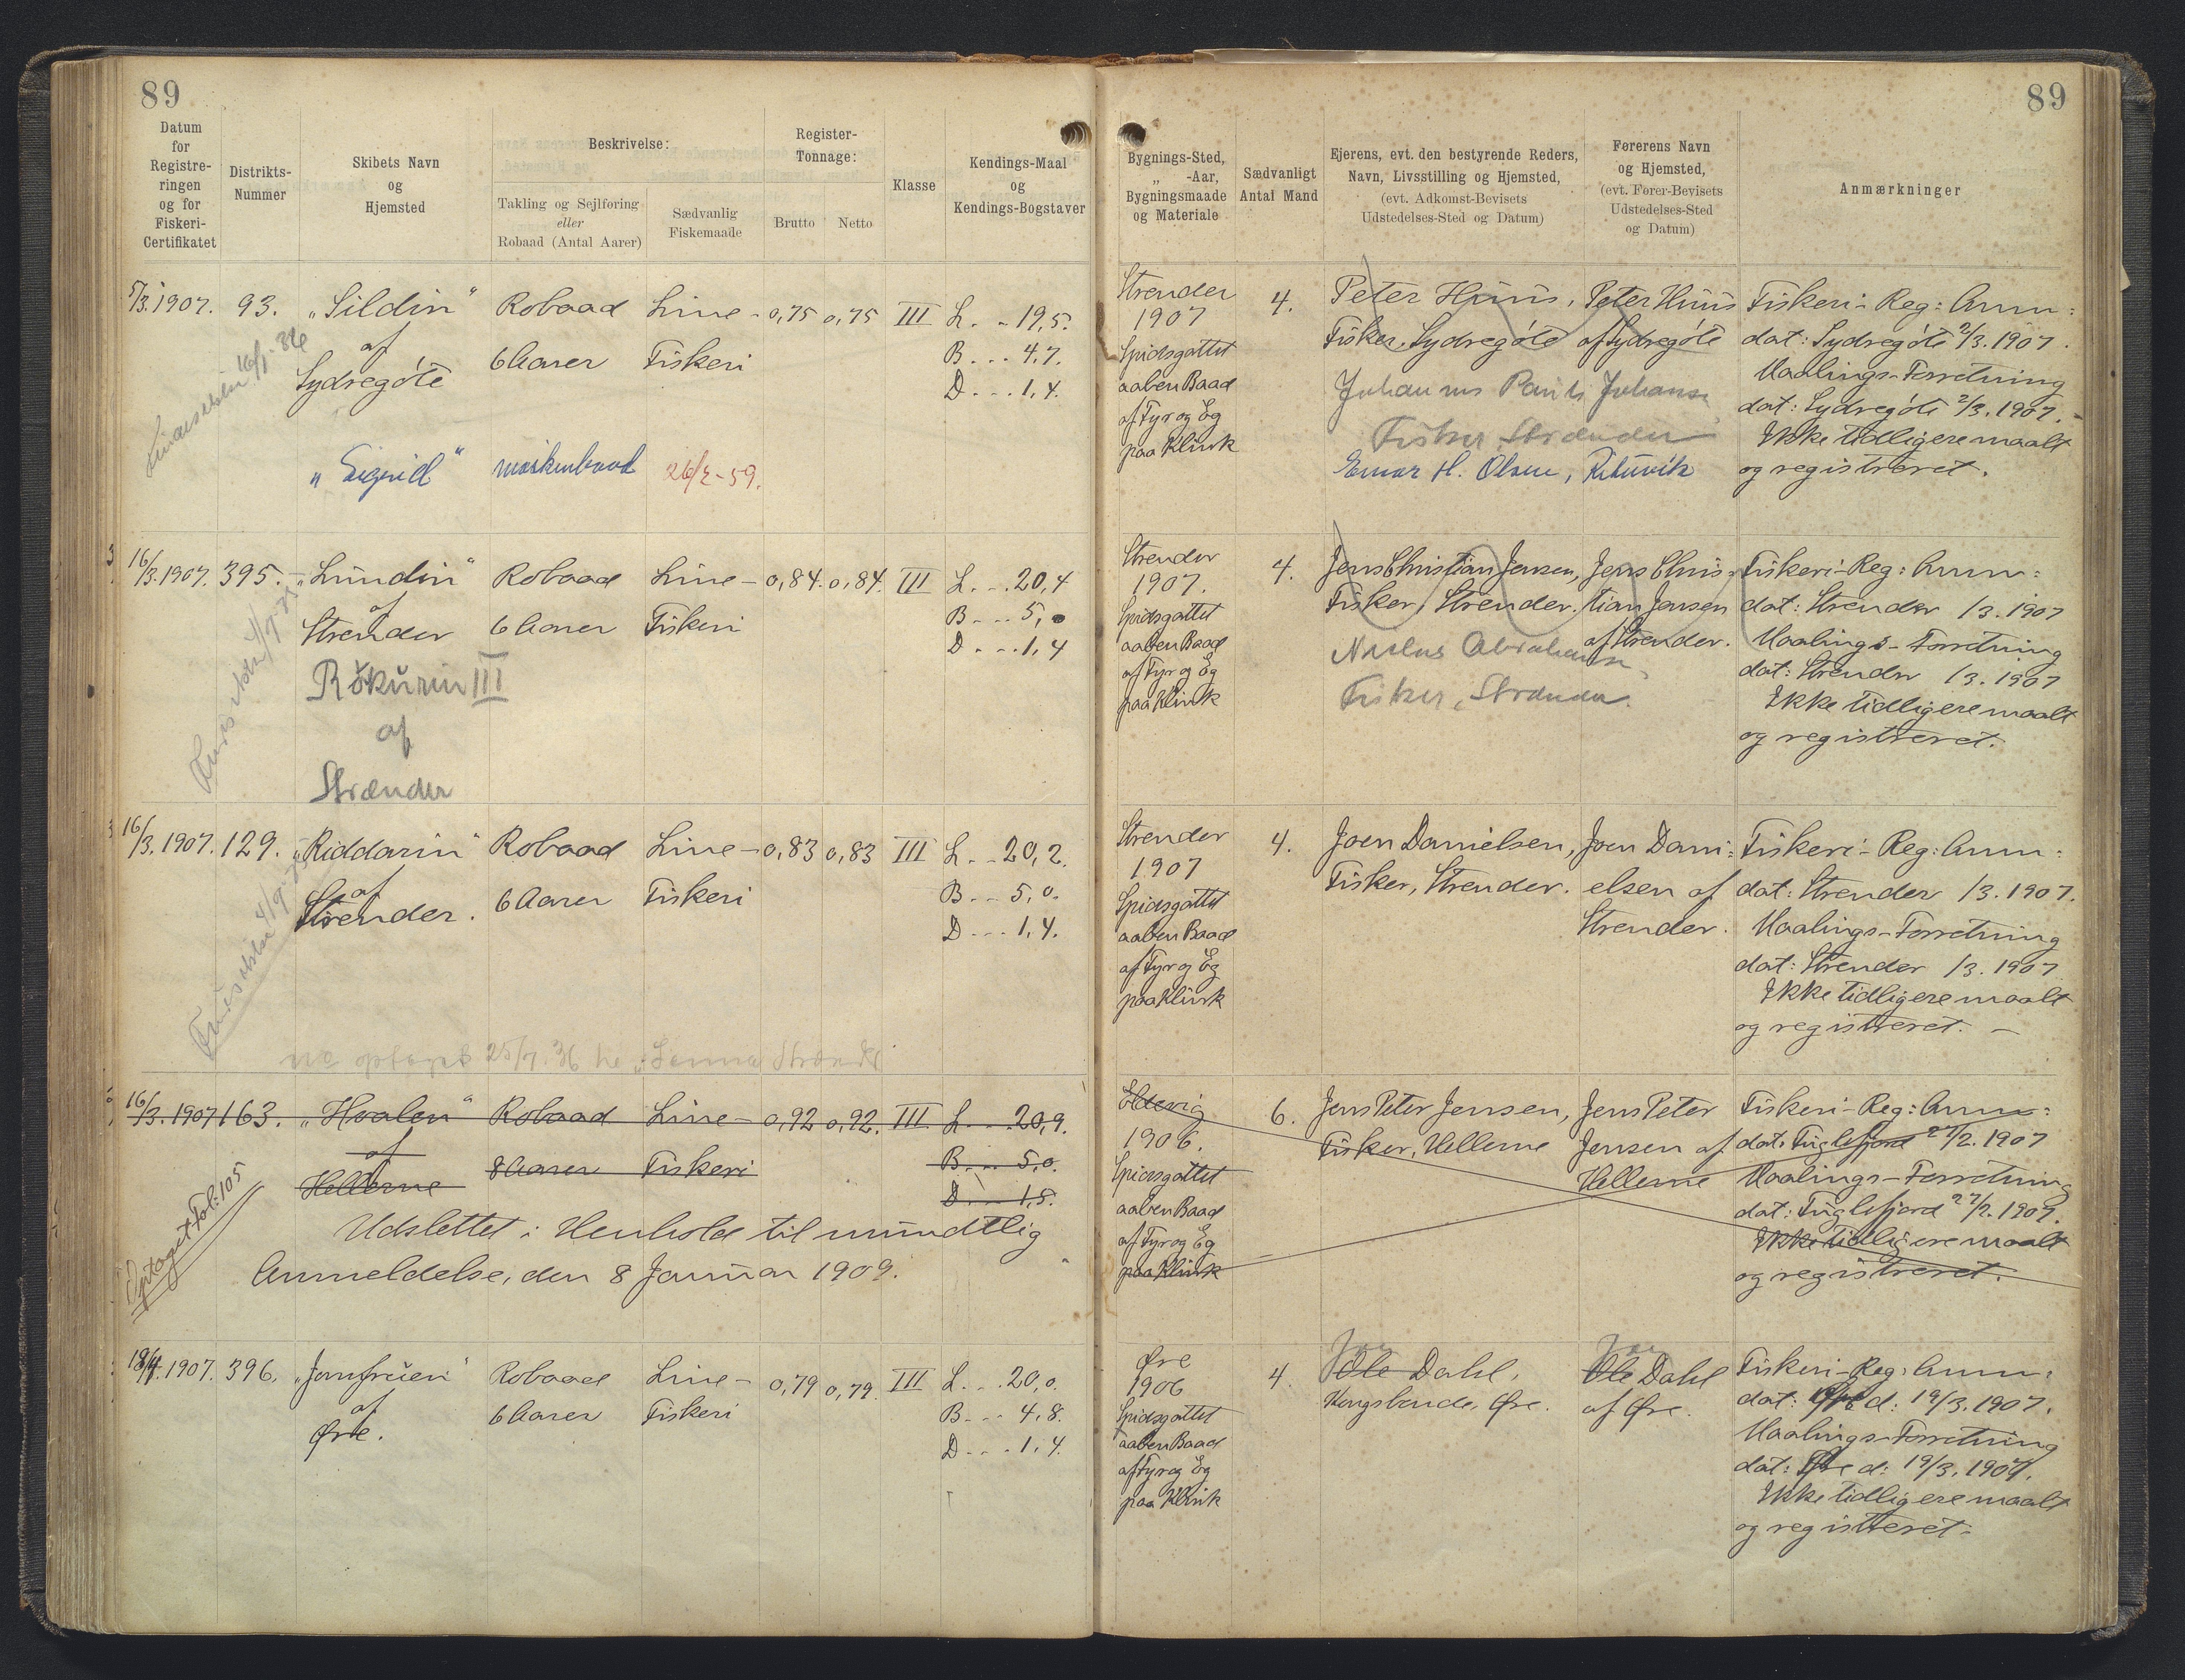 89
89
Datum
for
Registre-
ringen
og for
Fiskeri-
Certifikatet
Distrikts-
Nummer
Skibets Navn
og
Hjemsted
Beskrivelse:
Takling og Sejlføring
eller
Robaad (Antal Aarer)
Sædvanlig
Fiskemaade
Register-
Tonnage:
Brutto
Netto
Klasse
Kendings-Maal
og
Kendings-Bogstaver
Bygnings-Sted,
„ -Aar,
Bygningsmaade
og Materiale
Sædvanligt
Antal Mand
Ejerens, evt. den bestyrende Reders,
Navn, Livsstilling og Hjemsted,
(evt. Adkomst-Bevisets
Udstedelses-Sted og Datum)
Førerens Navn
og Hjemsted,
(evt. Fører-Bevisets
Udstedelses-Sted
og Datum)
Anmærkninger
5/3. 1907. 93. „Sildin"
af
Sydregøte
Robaad
6 Aarer
Line-
Fiskeri
0,75 0,75 III
L. . . 19,5.
B . . . 4,7.
D . . . 1,4.
16/1-36
„Sigrid" maskinbaad 26/2-59.
Strender
1907
Spidsgattet
aaben Baad
af Fyr og Eg
paa Klink
4.
Peter Huus,
Fisker, Sydregøte
Peter Huus
af Sydregøte
Fisker Strænder
Einar H. Olsen, Rituvik
Fiskeri-Reg: Anm:
dat: Sydregøte 2/3. 1907.
Maalings-Forretning
dat: Sydregøte 2/3. 1907.
Ikke tidligere maalt
og registreret.
16/3. 1907. 395. „Lundin"
af
Strender
Robaad
6 Aarer
Line-
Fiskeri
0,84. 0,84. III
L. . . 20,4
B . . . 5,0
D . . . 1,4
Rókurin III
af
Strænder
Strender
1907.
Spidsgattet
aaben Baad
af Fyr og Eg
paa Klink
4.
Jens Christian Jensen,
Fisker, Strender.
Jens Chris-
tian Jensen
af Strender.
Fisker, Strænder.
Fiskeri-Reg: Anm:
dat: Strender /3. 1907
Maalings-Forretning
dat: Strender /3. 1907
Ikke tidligere maalt
og registreret.
16/3. 1907. 129. „Riddarin"
af
Strender.
Robaad
6 Aarer
Line-
Fiskeri
0,83 0,83 III
L. . . 20,2.
B . . . 5,0.
D . . . 1,4.
25/7. 36
Strender
1907
Spidsgattet
aaben Baad
af Fyr og Eg
paa Klink
4.
Joen Danielsen,
Fisker, Strender.
Joen Dani=
elsen af
Strender.
Fiskeri-Reg: Anm:
dat: Strender /3. 1907.
Maalings-Forretning
dat: Strender /3. 1907
Ikke tidligere maalt
og registreret. –
16/3. 1907 163. „Hvalen"
af
Hellerne
Robaad
8 Aarer
Line-
Fiskeri
0,92 0,92. III
L. . . 20,9.
B . . . 5,0.
D . . . 1,5.
Optaget Fol: 105
Udslettet i Henhold til mundtlig
Anmeldelse, den 8 Januar 1909.
Eldevig
1906.
Spidsgattet
aaben Baad
af Fyr og Eg
paa Klink
6.
Jens Peter Jensen,
Fisker, Hellerne
Jens Peter
Jensen af
Hellerne
Fiskeri-Reg: Anm:
dat: Fuglefjord 27/2. 1907
Maalings-Forretning
dat: Fuglefjord 27/2. 1907.
Ikke tidligere maalt
og registreret.
18/4. 1907. 396. „Jomfruen"
af
Øre.
Robaad
6 Aarer
Line-
Fiskeri
0,79 0,79. III
L. . . 20,0.
B . . . 4,8.
D . . . 1,4.
Øre
1906
Spidsgattet
aaben Baad
af Fyr og Eg
paa Klink
4.
Ole Dahl,
Kongsbonde, Øre.
Ole Dahl
af Øre.
Fiskeri-Reg: Anm:
dat: Øre d: 19/3. 1907.
Maalings-Forretning
dat: Øre d: 19/3. 1907.
Ikke tidligere maalt
og registreret.